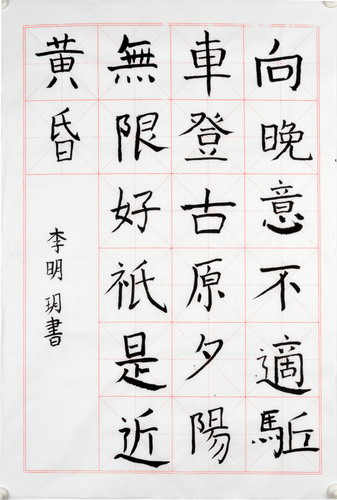 向晚意不適駈
車登古原夕陽
無限好祇是近
黄昏
李明玥書